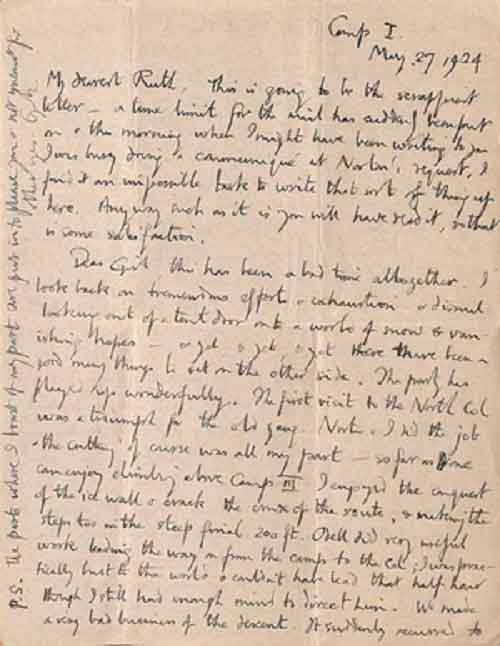 Camp I.
May. 27 1924
My dearest Ruth, This is going to be the scrappiest
letter — a time limit for the mail has suddenly been put
on & this morning when I might have been writing to you
I was busy doing a communiqué at Norton's request. I
find it an impossible task to write that sort of thing up
here. Anyway such as it is you will have read it, so that
is some satisfaction.
Dear Girl this has been a bad time altogether. I
look back on tremendous efforts & exhaustion & dismal
looking out of a tent door onto a world of snow & van-
ishing hopes — & yet, & yet, & yet there have been a
good many things to set on the other side. The party has
played up wonderfully. The first visit to the North Col
was a triumph for the old gang. Norton & I did the job
& the cutting of course was all my part — so far as one
can enjoy climbing above Camp III I enjoyed the conquest
of the ice wall & crack the crux of the route, & making the
steps too in the steep final 200 ft. Odell did very useful
work leading the way on from the camp to the Col; I was prac-
tically bust to the world & couldn't have lead that half hour
though I still had enough mind to direct him. We made
a very bad business of the descent. It suddenly occurred to
P.S. The parts where I boast of my part are put in to please you & not meant for
other eyes